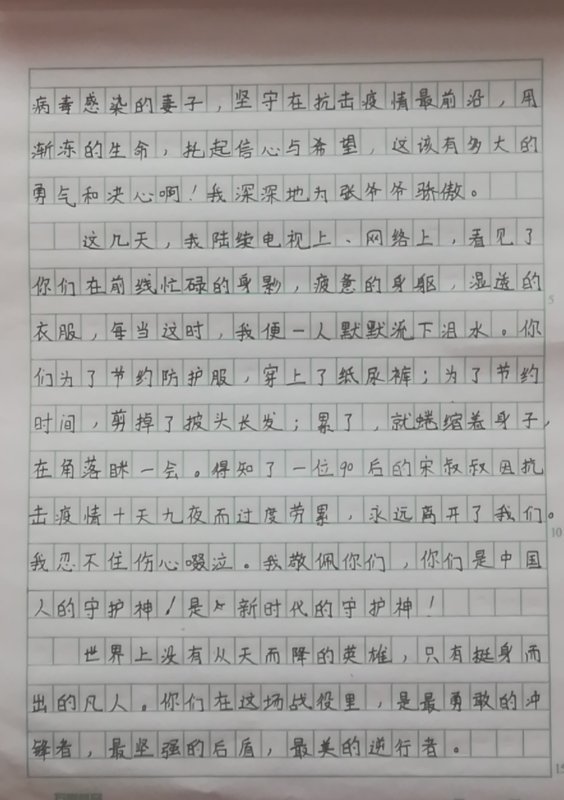 病毒感染的妻子，坚守在抗击疫情最前沿，用
渐冻的生命，托起信心与希望，这该有多大的
勇气和决心啊！我深深地为张爷爷骄傲。
这几天，我陆续电视上、网络上，看见了
你们在前线忙碌的身影，疲惫的身躯，湿透的
衣服，每当这时，我便一人默默流下泪水。你
们为了节约防护服，穿上了纸尿裤；为了节约
时间，剪掉了披头长发；累了，就蜷缩着身子，
在角落眯一会。得知了一位90后的宋叔叔因抗
击疫情十天九夜而过度劳累，永远离开了我们。
我忍不住伤心啜泣。我敬佩你们，你们是中国
人的守护神！是新时代的守护神！
世界上没有从天而降的英雄，只有挺身而
出的凡人。你们在这场战役里，是最勇敢的冲
锋者，最坚强的后盾，最美的逆行者。
5
10
15